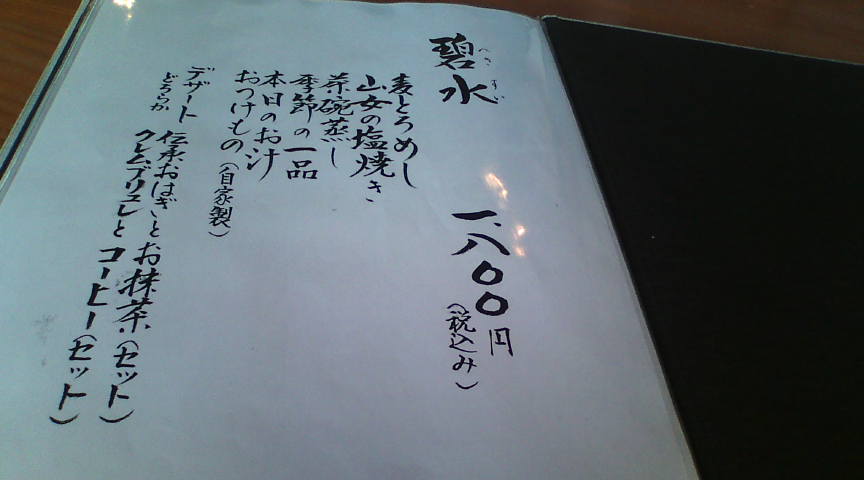 碧水
へきすい
一、八〇〇円
(税込み)
麦とろめし
山女の塩焼き
茶碗蒸し
季節の一品
本日のお汁
おつけもの(自家製)
デザート
どちらか
伝承おはぎとお抹茶(セット)
クレムブリュレとコーヒー(セット)